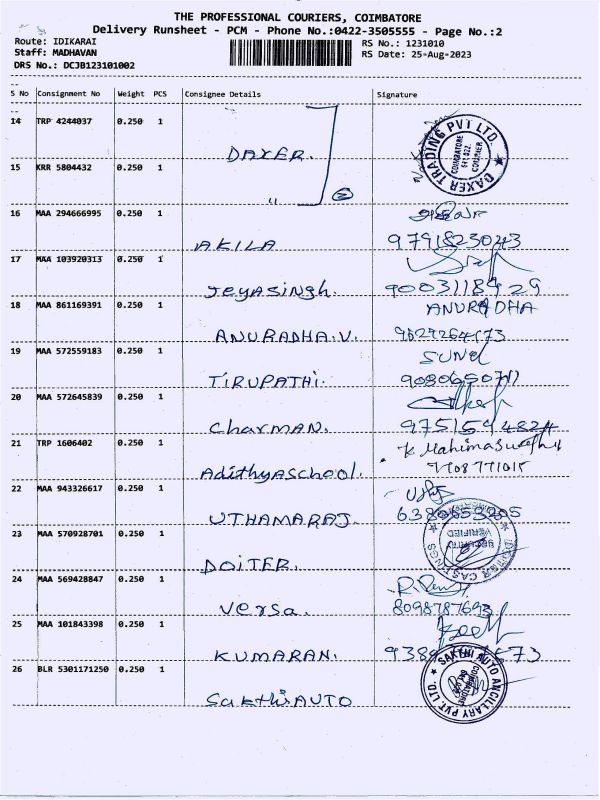 THE PROFESSIONAL COURIERS, COIMBATORE
Delivery Runsheet - PCM - Phone No.:0422-3505555 - Page No.:2
Route: IDIKARAI RS No.: 1231010
Staff: MADHAVAN RS Date: 25-Aug-2023
DRS No.: DCJB123101002
S No Consignment No Weight PCS Consignee Details Signature
14 TRP 4244037 0.250 1
DAXER.
DAXER TRADING PVT LTD. COIMBATORE 641 022. COURIER
15 KRR 5804432 0.250 1
" 2
16 MAA 294666995 0.250 1
AKILA 9791823043
17 MAA 103920313 0.250 1
Jeyasingh. 9003118929
18 MAA 861169391 0.250 1 ANURADHA
ANURADHA.V.
19 MAA 572559183 0.250 1
TIRUPATHI.
20 MAA 572645839 0.250 1
Charman. 9751594824
21 TRP 1606402 0.250 1 K Mahima
Adithyaschool. 7708771015
22 MAA 943326617 0.250 1
UTHAMARAJ. 6380653205
23 MAA 570928701 0.250 1
SECURITY VERIFIED CASTINGS
DOITER.
24 MAA 569428847 0.250 1
Versa. 8098787693
25 MAA 101843398 0.250 1
KUMARAN.
26 BLR 5301171250 0.250 1
SAKTHI AUTO ANCILLARY PVT. LTD. COIMBATORE
SakthiAUTO